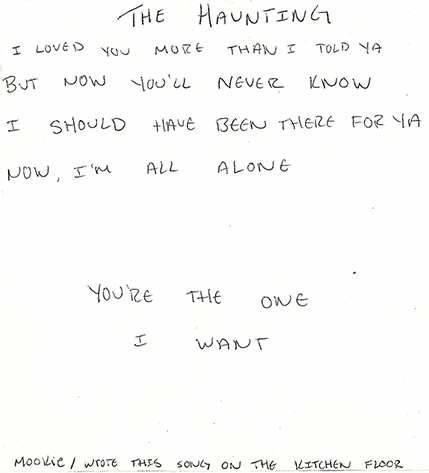 THE HAUNTING
I LOVED YOU MORE THAN I TOLD YA
BUT NOW YOU'LL NEVER KNOW
I SHOULD HAVE BEEN THERE FOR YA
NOW, I'M ALL ALONE
YOU'RE THE ONE
I WANT
MOOKIE / WROTE THIS SONG ON THE KITCHEN FLOOR